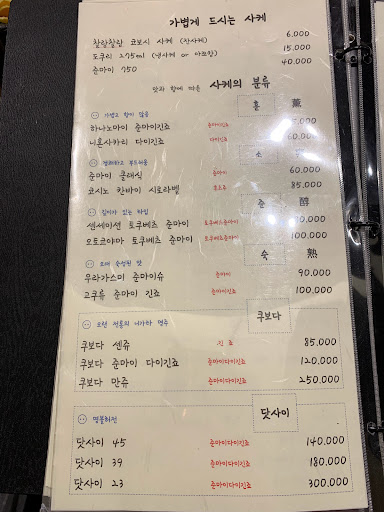 가볍게 드시는 사케
찰랑찰랑 쿄보시 사케 (잔사케) 6,000
도쿠리 275ml (냉사케 or 아쯔캉) 15,000
준마이 750 40,000
맛과 향에 따른 사케의 분류
훈 薰
가볍고 향이 많음
하나노마이 준마이긴죠 준마이긴죠
니혼사카리 다이긴죠 다이긴죠 60,000
소
경쾌하고 부드러움
준마이 클래식 준마이 60,000
코시노 칸바이 시로라벨 혼죠조 85,000
준 醇
깊이가 있는 타입
센세이션 토쿠베츠 준마이 토쿠베츠준마이
오토코야마 토쿠베츠 준마이 토쿠베츠준마이 100,000
숙 熟
오래 숙성된 맛
우라가스미 준마이슈 준마이 90,000
고쿠류 준마이 긴죠 준마이긴죠 100,000
쿠보다
오랜 전통의 니가타 명주
쿠보다 센쥬 긴죠 85,000
쿠보다 준마이 다이긴죠 준마이다이긴죠 120,000
쿠보다 만쥬 준마이다이긴죠 250,000
닷사이
명불허전
닷사이 45 준마이다이긴죠 140,000
닷사이 39 준마이다이긴죠 180,000
닷사이 23 준마이다이긴죠 300,000